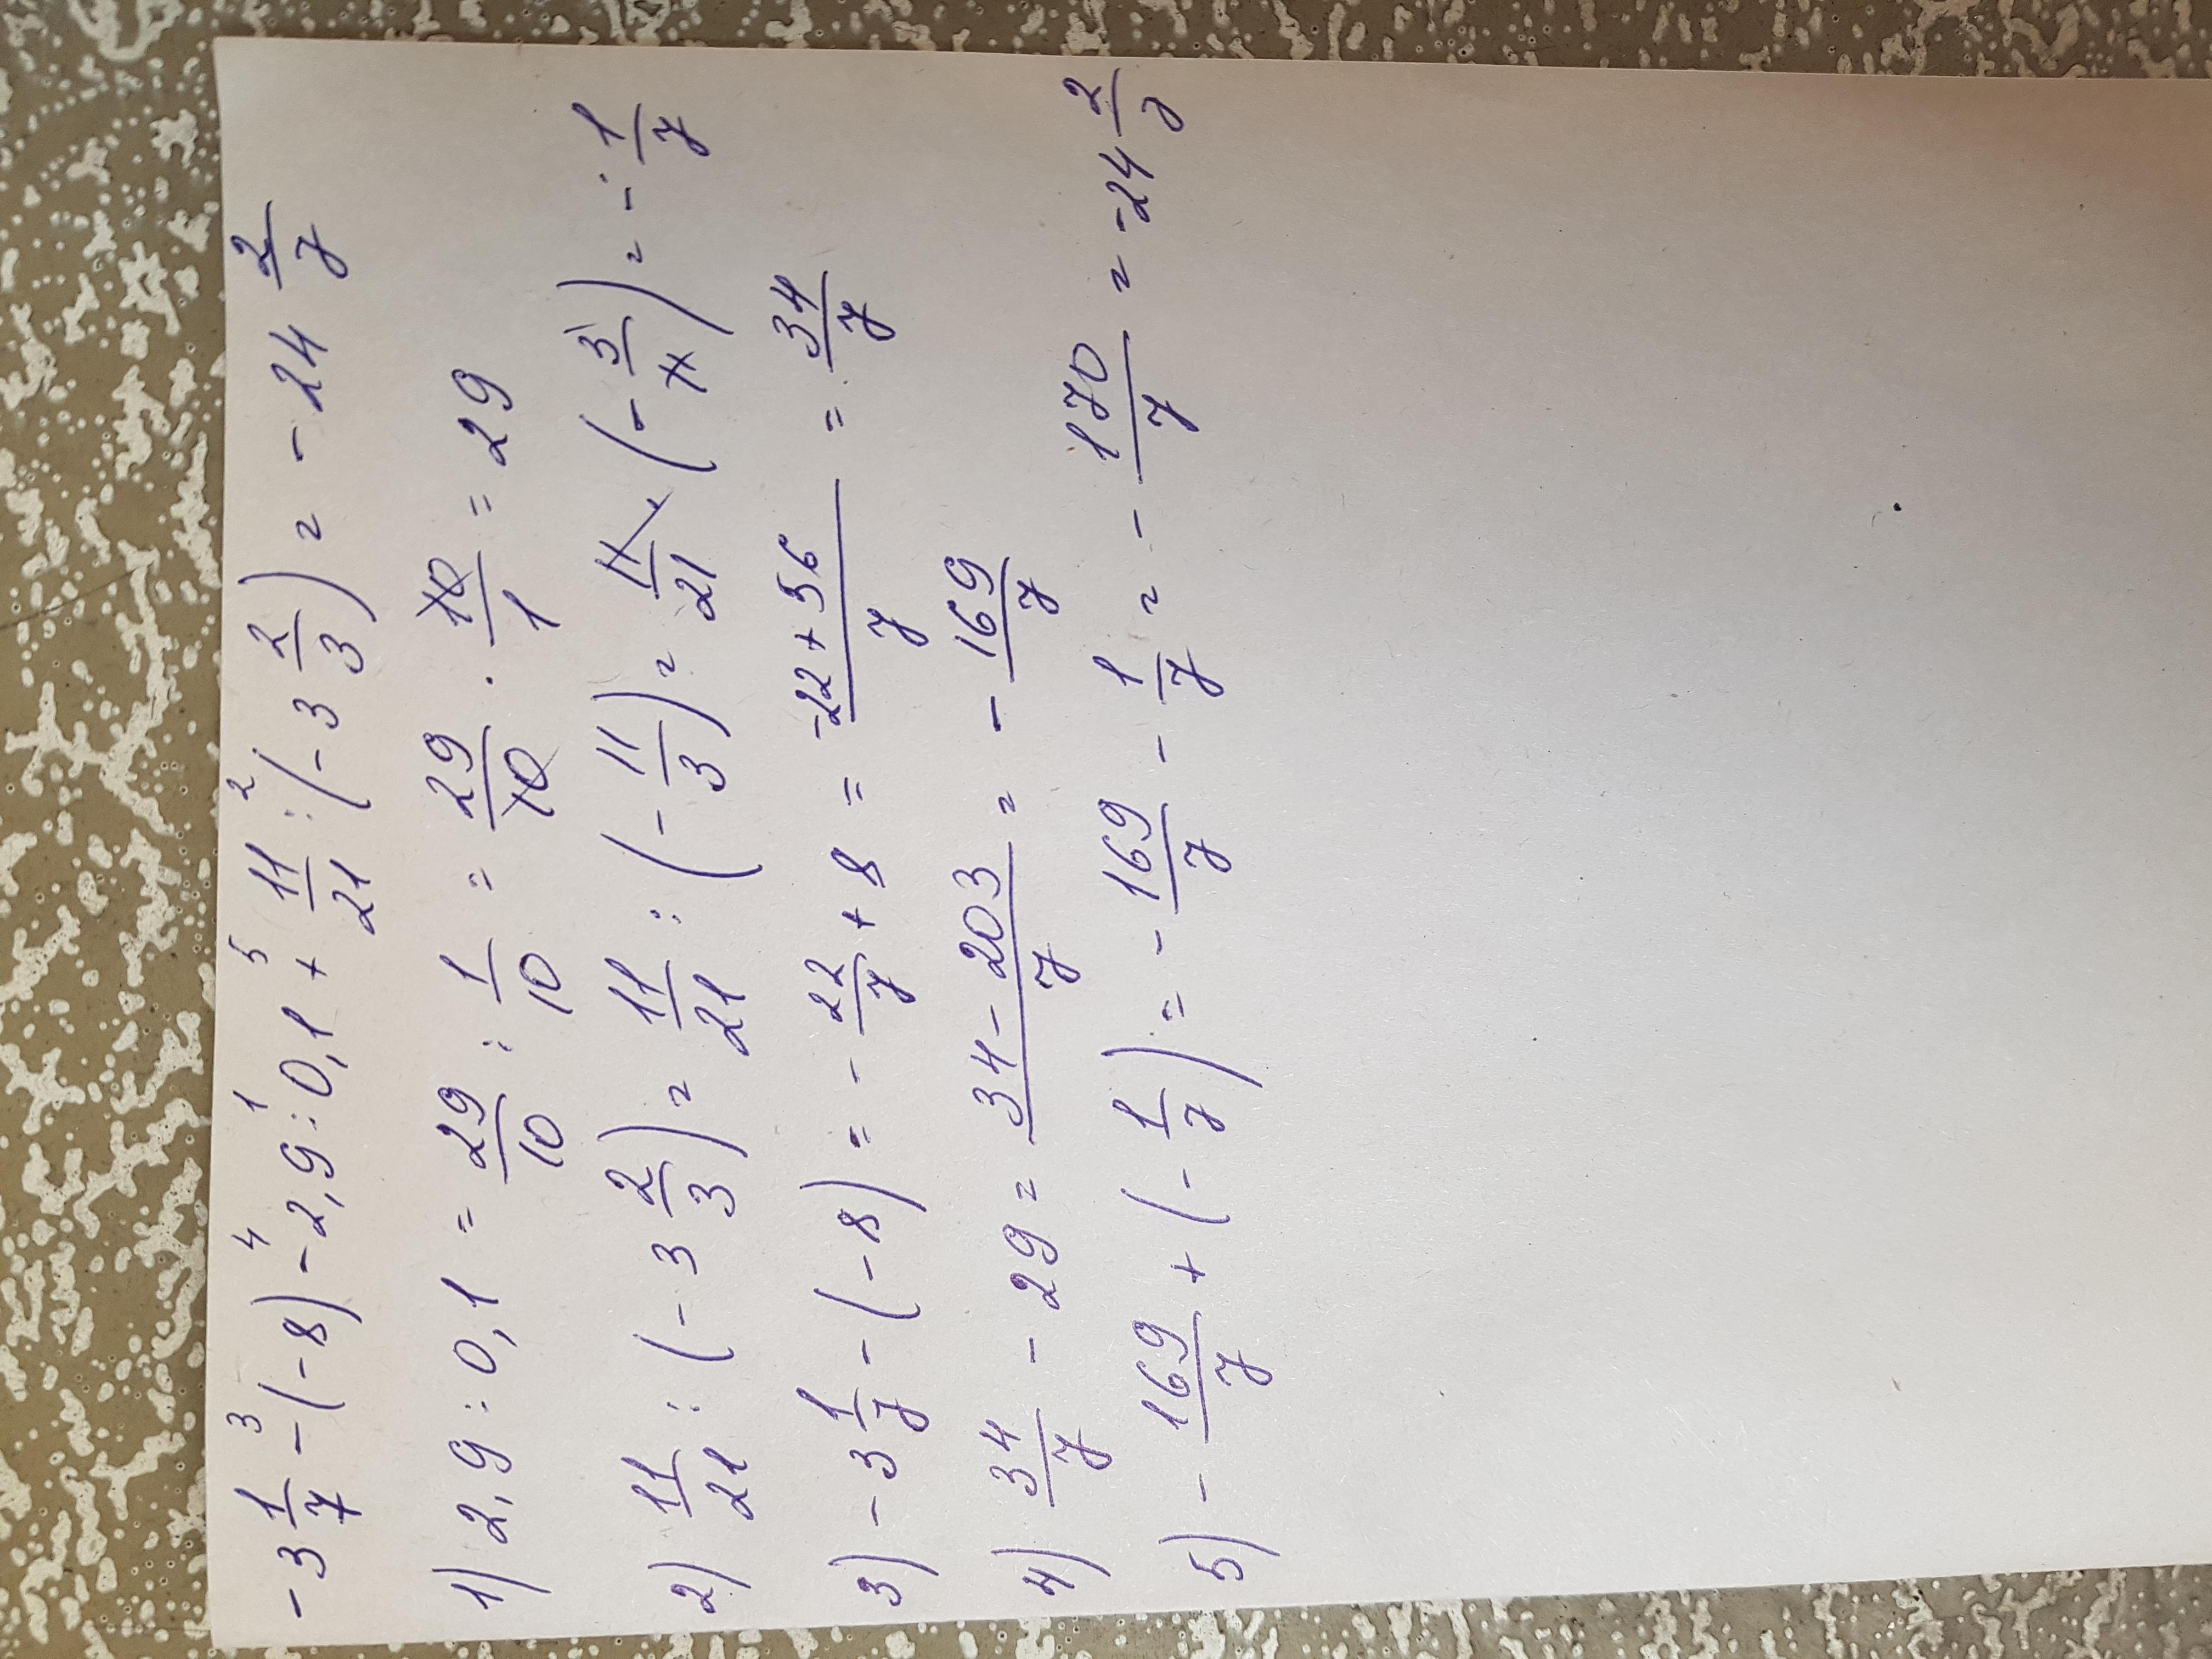 -3 1/7 -³ (-8) -⁴ 2,9 :¹ 0,1 +⁵ 11/21 :² (-3 2/3) = -24 2/7
1) 2,9 : 0,1 = 29/10 : 1/10 = 29/10 · 10/1 = 29
2) 11/21 : (-3 2/3) = 11/21 : (-11/3) = 11/21 · (-3/11) = -1/7
3) -3 1/7 - (-8) = -22/7 + 8 = (-22+56)/7 = 34/7
4) 34/7 - 29 = (34-203)/7 = -169/7
5) -169/7 + (-1/7) = -169/7 - 1/7 = -170/7 = -24 2/7